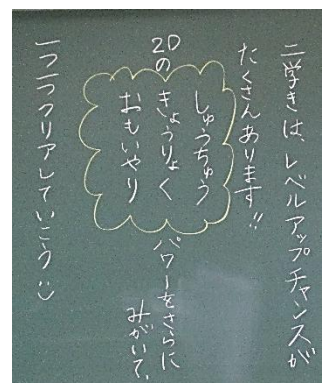 二学きは、レベルアップチャンスが
たくさんあります!!
しゅうちゅう
2Dの
きょうりょく
おもいやり
パワーをさらに
みがいて、
一つ一つクリアしていこう